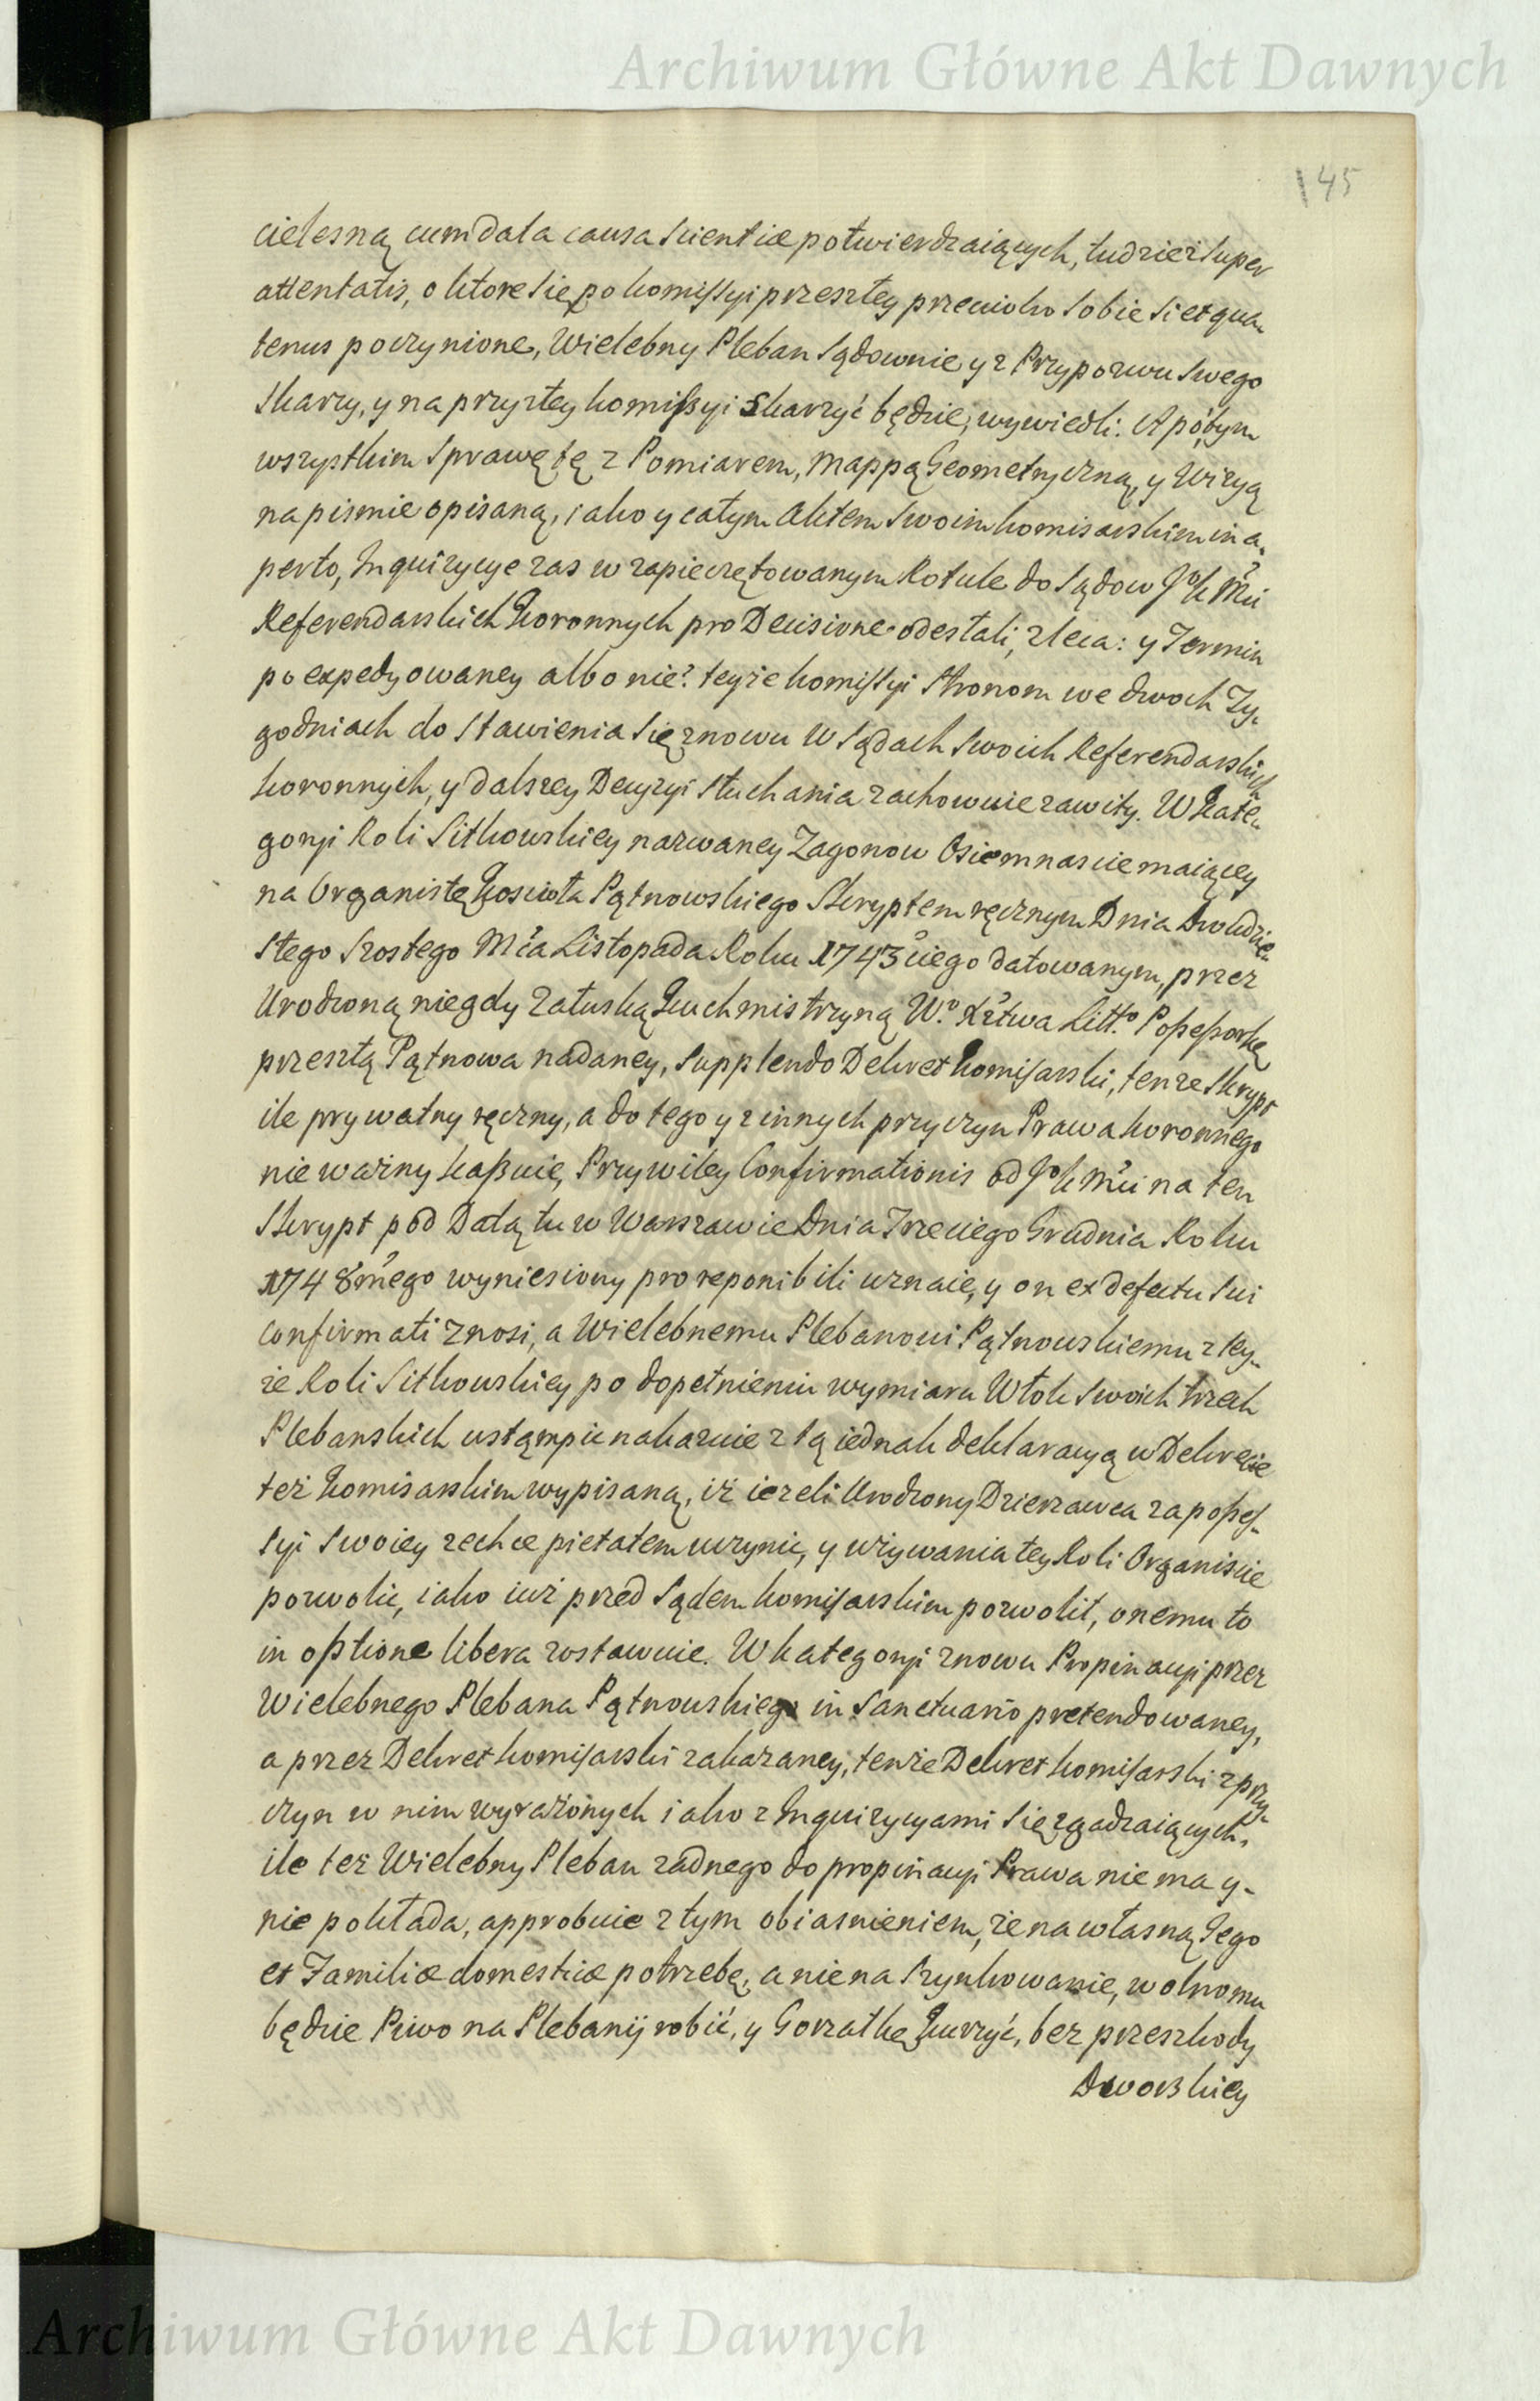 Archiwum Główne Akt Dawnych
145
cielesną cum data causa Scientiæ potwierdzaiących, tudzież Super
attentatis, o ktore Się po Komissyi przeszłey przeciwko Sobie Si et qua-
tenus poczynione, Wielebny Pleban Sądownie y z Przypozwu Swego
Skarzy, y na przyszłey Komissyi Skarzyć będzie, wywiedli: A po tym
wszystkim Sprawę tę z Pomiarem, Mappą Geometryczną, y Wizyą
na pismie opisaną, iako y całym Aktem Swoim Komisarskim in a-
perto, Inquizycye zas w zapieczętowanym Rotule do Sądow JK Mci
Referendarskich Koronnych pro Decisione odesłali, zleca: y Termin
po expedyowaney albo nie? teyże Komissyi Stronom we dwoch Ty-
godniach do Stawienia Się znowu W Sądach Swoich Referendarskich
Koronnych, y dalszey Decyzyi Słuchania zachowuie zawity. W Kate-
goryi Roli Sitkowskiey nazwaney Zagonow Osiemnascie maiącey
na Organistę Koscioła Pątnowskiego Skryptem ręcznym Dnia Dwudzie-
stego Szostego Mca Listopada Roku 1743ciego datowanym, przez
Urodzoną niegdy Załuską Kuchmistrzyną W.º Xstwa Litt.º Possessorkę
przeszłą Pątnowa nadaney, Supplendo Dekret Komisarski, tenze Skrypt
ile prywatny ręczny, a do tego y z innych przyczyn Prawa Koronnego
nie ważny kassuie, Przywiley Confirmationis od JK Mci na ten
Skrypt pod Datą tu w Warszawie Dnia Trzeciego Grudnia Roku
1748mego wyniesiony pro reponibili uznaie, y on ex defectu Sui
confirmati znosi, a Wielebnemu Plebanowi Pątnowskiemu z tey-
że Roli Sitkowskiey po dopełnieniu wymiaru Włok Swoich trzech
Plebanskich ustąmpic nakazuie z tą iednak deklaracyą w Dekrecie
też Komisarskim wypisaną, iż iezeli Urodzony Dzierzawca za posses-
syi Swoiey zechce pietatem uczynic, y używania tey Roli Organiscie
pozwolic, iako iuż przed Sądem Komisarskim pozwolił, onemu to
in optione libera zostawuie. W kategoryi znowu Propinacyi przez
Wielebnego Plebana Pątnowskiego in Sanctuario pretendowaney,
a przez Dekret Komisarski zakazaney, tenże Dekret Komisarski z przy-
czyn w nim wyrażonych iako z Inquizycyami Się zgadzaiących,
ile też Wielebny Pleban zadnego do propinacyi Prawa nie ma y-
nie pokłada, approbuie z tym obiasnieniem, że na własną Jego
et Familiæ domesticæ potrzebę, a nie na Szynkowanie, wolnomu
będzie Piwo na Plebanij robić, y Gorzałkę Kurzyć, bez przeszkody
Dworskiey
Archiwum Główne Akt Dawnych